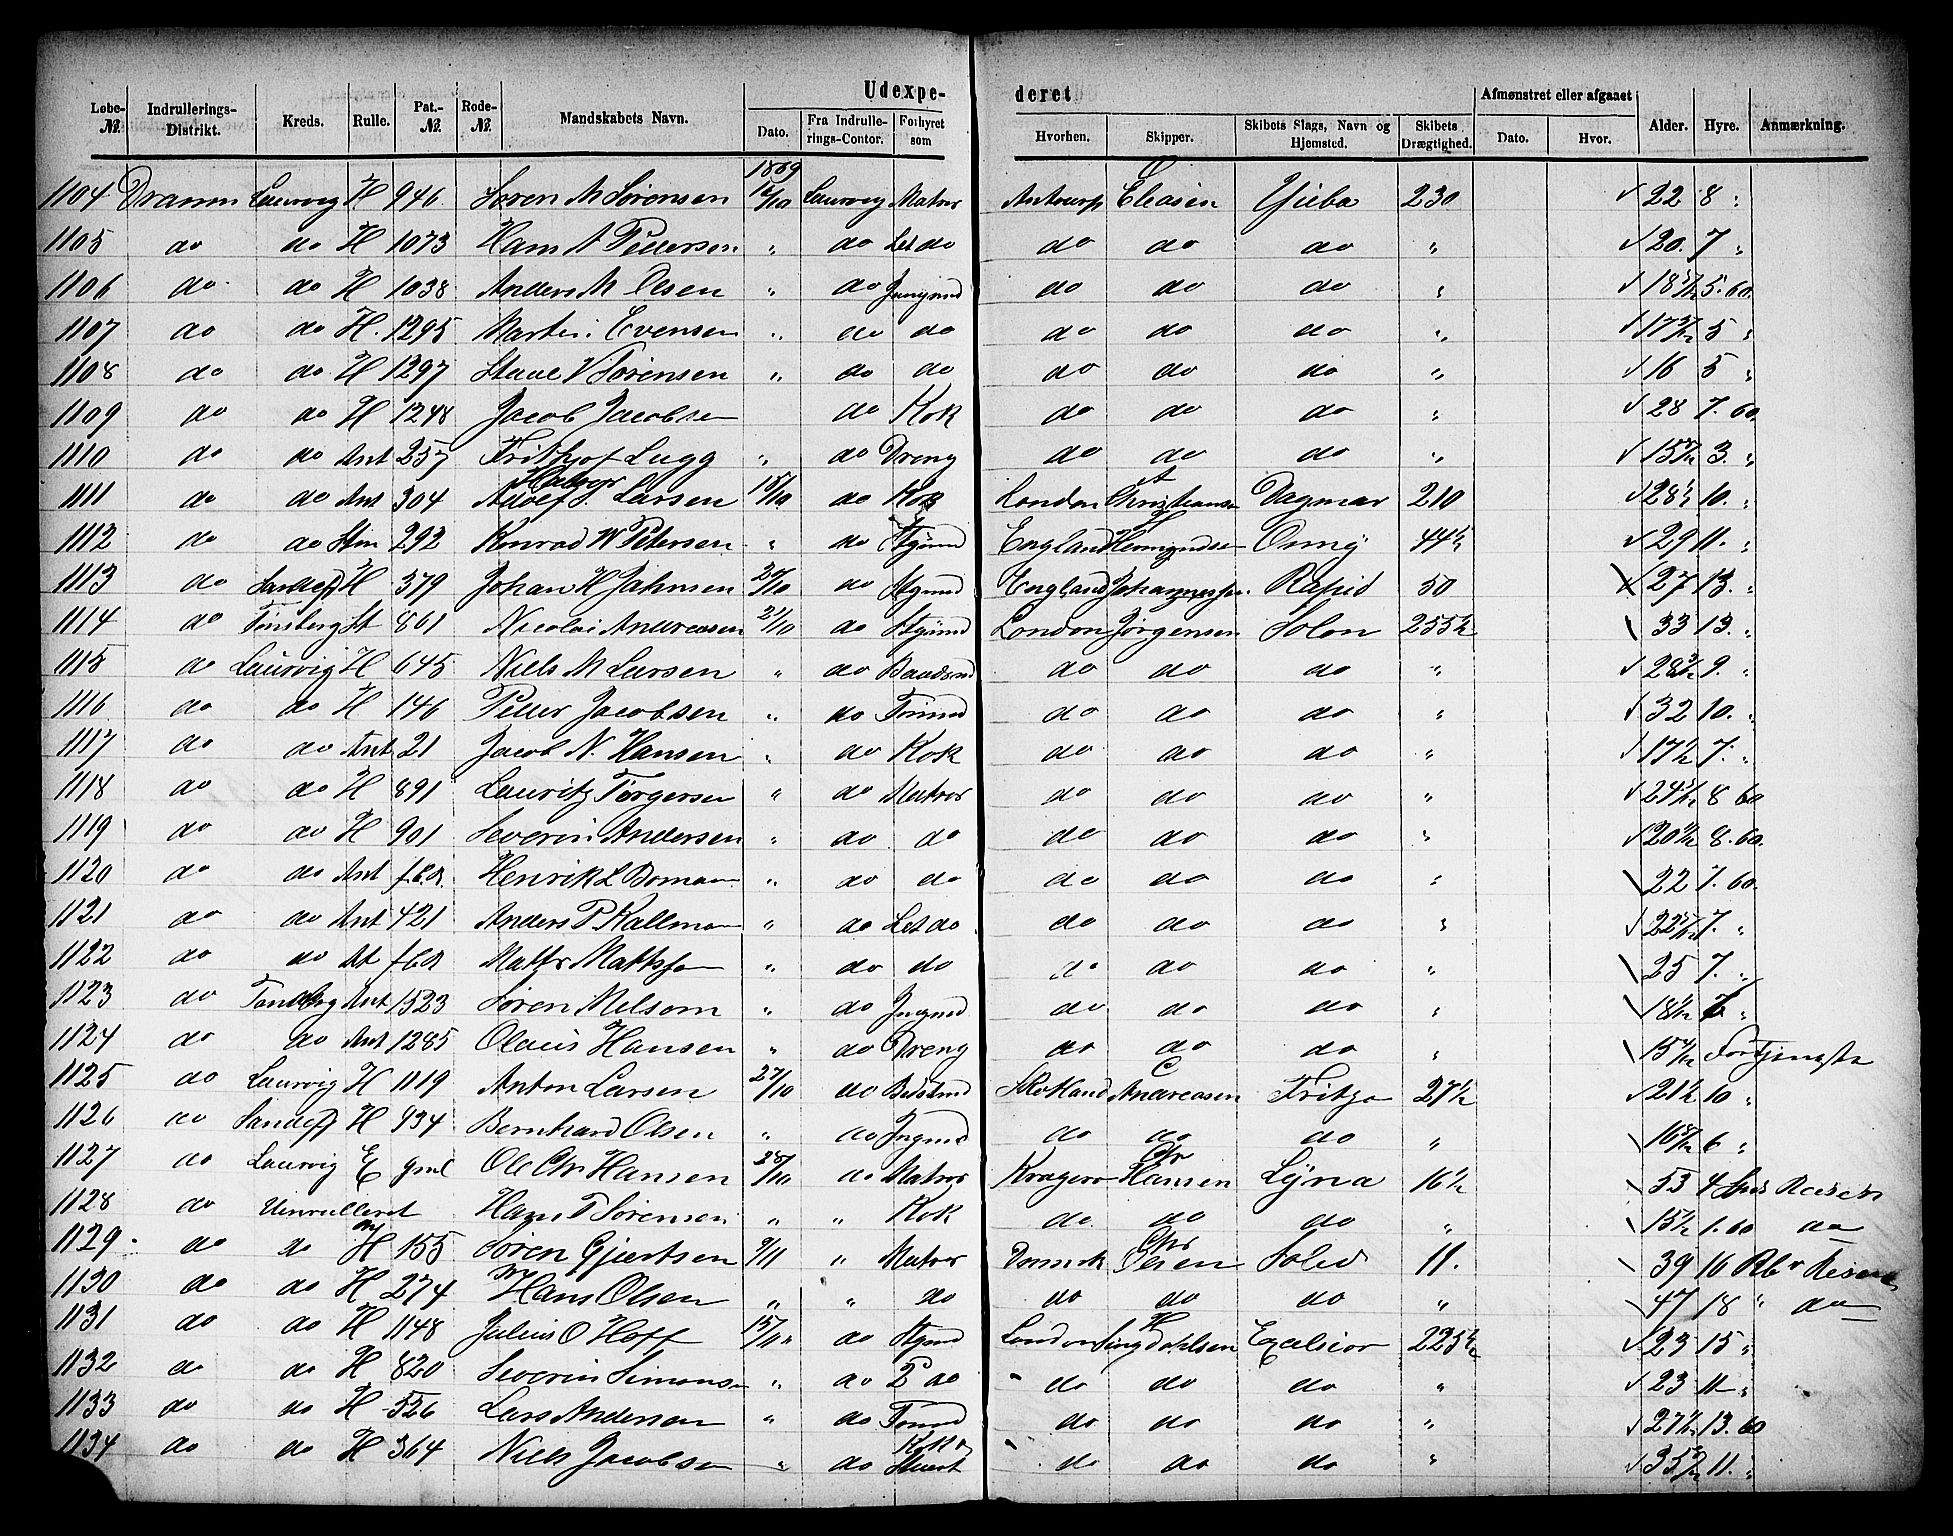 Udexpe- deret
Løbe- № Indrullerings- Distrikt. Kreds. Rulle. Pat.- №. Rode- №. Mandskabets Navn. Dato. Fra Indrulle- rings-Contor. Forhyret som Hvorhen. Skipper. Skibets Slags, Navn og Hjemsted. Skibets Drægtighed. Afmønstret eller afgaaet Dato. Hvor. Alder. Hyre. Anmærkning.
1869
1104 Dramm Laurvig H 946 Søren M Sørensen 12/10 Laurvig Matros Antwerp Eliasen 230 22 8 "
1105 do do H 1073 Hans A Pettersen " do Let do do do do " 20. 7 "
1106 do do H 1038 Anders M Olsen " do Jungmd do do do " 5. 60.
1107 do do H. 1295 Martin Evensen " do do do do do " 5 "
1108 do do H 1297 Sørensen " do do do do do " 16 5 "
1109 do do H 1248 Jacob Jacobsen do Kok do do do " 28 7. 60.
1110 do do Ant 257 Frithjof Lugg " do Dreng do do do " 3. "
1111 do do Ant 304 Halvor Larsen 15/10 do Kok London A Christiansen Dagmar 210 10. "
1112 do do 292 Konrad W Petersen " do Stgmd England Osmy 44½ 29 11. "
1113 do Sandefj H 379 Johan H Jahnsen 20/10 do Stgmd England Johannessen Rapid 50 27 13. "
1114 do Tønsberg St 861 Nicolai Andreasen 21/10 do Stgmd London Jørgensen Solon 255½ 33 13. "
1115 do Laurvig H 645 Niels M Larsen " do Baadsmd do do do " 9. "
1116 do do H 146 Peter Jacobsen " do Tømmd do do do " 32 10. "
1117 do do Ant 21 Jacob N. Hansen " do Kok do do do " 17½ 7. "
1118 do do H 891 Lauritz Torgersen " do Matros do do do " 8 60
1119 do do H 901 Severin Andersen " do do do do do " 8. 60.
1120 do do Ant f.C.A. Henrik L Boman " do do do do do " 22 7. 60.
1121 do do Ant 421 Anders P Kallman " do Let do do do do " 7. "
1122 do do At f C A Matts Mattsson " do do do do do " 25 7. "
1123 do Tønsberg Ant 1523 Søren Melsom " do Jngmd do do do "
1124 do do Ant 1285 Olaus Hansen " do Dreng do do do " Fortjeneste
1125 do Laurvig H 1119 Anton Larsen 27/10 do Bedstmd Skotland C Andreasen Fritzo 27½ 21½ 10 "
1126 do Sandefj H 934 Bernhard Olsen " do Jngmd do do do " 6 "
1127 do Laurvig E gml Ole Chr Hansen 28/10 do Matros Kragerø Chr Hansen Lyna 16½ 53 4 Reisen
1128 do Uinrulleret Hans P Sørensen " " Kok do do do " 15½ 1. 60 do
1129 do do H 155 Søren Gjertsen 9/11 " Matros Danmrk Chr Olsen Solid 11. 39 16 Reisen
1130 do do H 274 Hans Olsen " " do do do do " 47 18 " do
1131 do do H 1148 Julius O Hoff 15/11 do Stgmd London H Lingdahlsen Excelsior 225½ 23 15 "
1132 do do H 820 Severin Simonsen " do 2 do do do do " 23 11 "
1133 do do H 526 Lars Anderson " do Tømmd do do do " 27½ 13. 60
1134 do do H 364 Niels Jacobsen " do Kok & Stuert do do do " 11. "